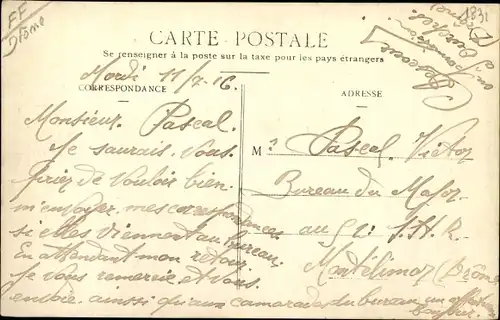 FF
Drôme
1831
CARTE POSTALE
Se renseigner à la poste sur la taxe pour les pays étrangers
Mardi 11/7.16.
CORRESPONDANCE
ADRESSE
Monsieur Pascal.
Je saurais vous
prier de vouloir bien
m'envoyer mes correspondances
si elles viennent au bureau.
En attendant mon retour
je vous remercie et vous
envoie ainsi qu'aux camarades du bureau, un affectueux
bonjour.
Mr Pascal Victor
Bureau du Major
au 52e
Montélimar (Drôme)